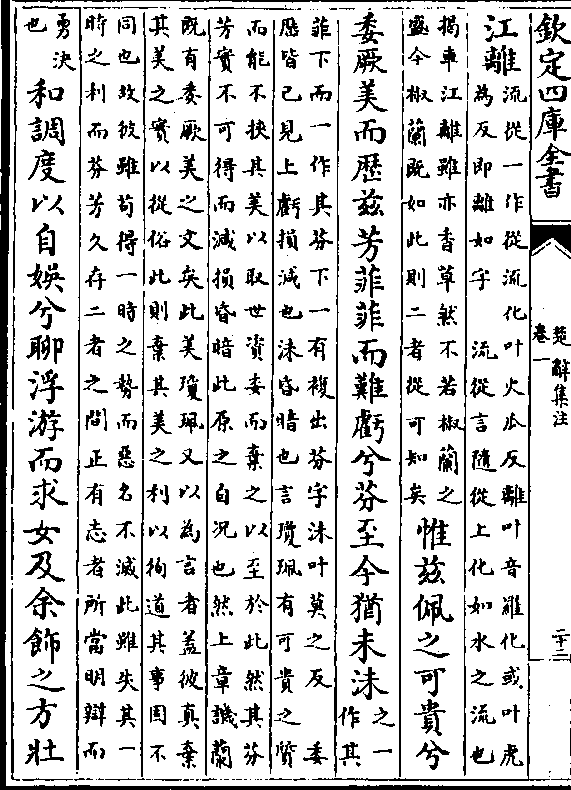 欽定四庫全書
楚辭集注
卷一
二十三
江離流從一作從流化叶火瓜反離叶音羅化或叶虎
為反即離如字 流從言隨從上化如水之流也
揭車江離雖亦香草然不若椒蘭之
盛今椒蘭既如此則二者從可知矣
惟兹佩之可貴兮
委厥美而歷兹芳菲菲而難虧兮芬至今猶未沬之一
作其
菲下而一作其芬下一有複出芬字沬叶莫之反 委
歷皆已見上虧損減也沬昏暗也言瓊珮有可貴之質
而能不挾其美以取世資委而棄之以至於此然其芬
芳實不可得而減損昏暗此原之自况也然上章譏蘭
既有委厥美之文矣此美瓊珮又以為言者蓋彼真棄
其美之實以從俗此則棄其美之利以徇道其事固不
同也故彼雖苟得一時之勢而惡名不滅此雖失其一
時之利而芬芳久存二者之間正有志者所當明辯而
勇决
也
和調度以自娛兮聊浮游而求女及余飾之方壯